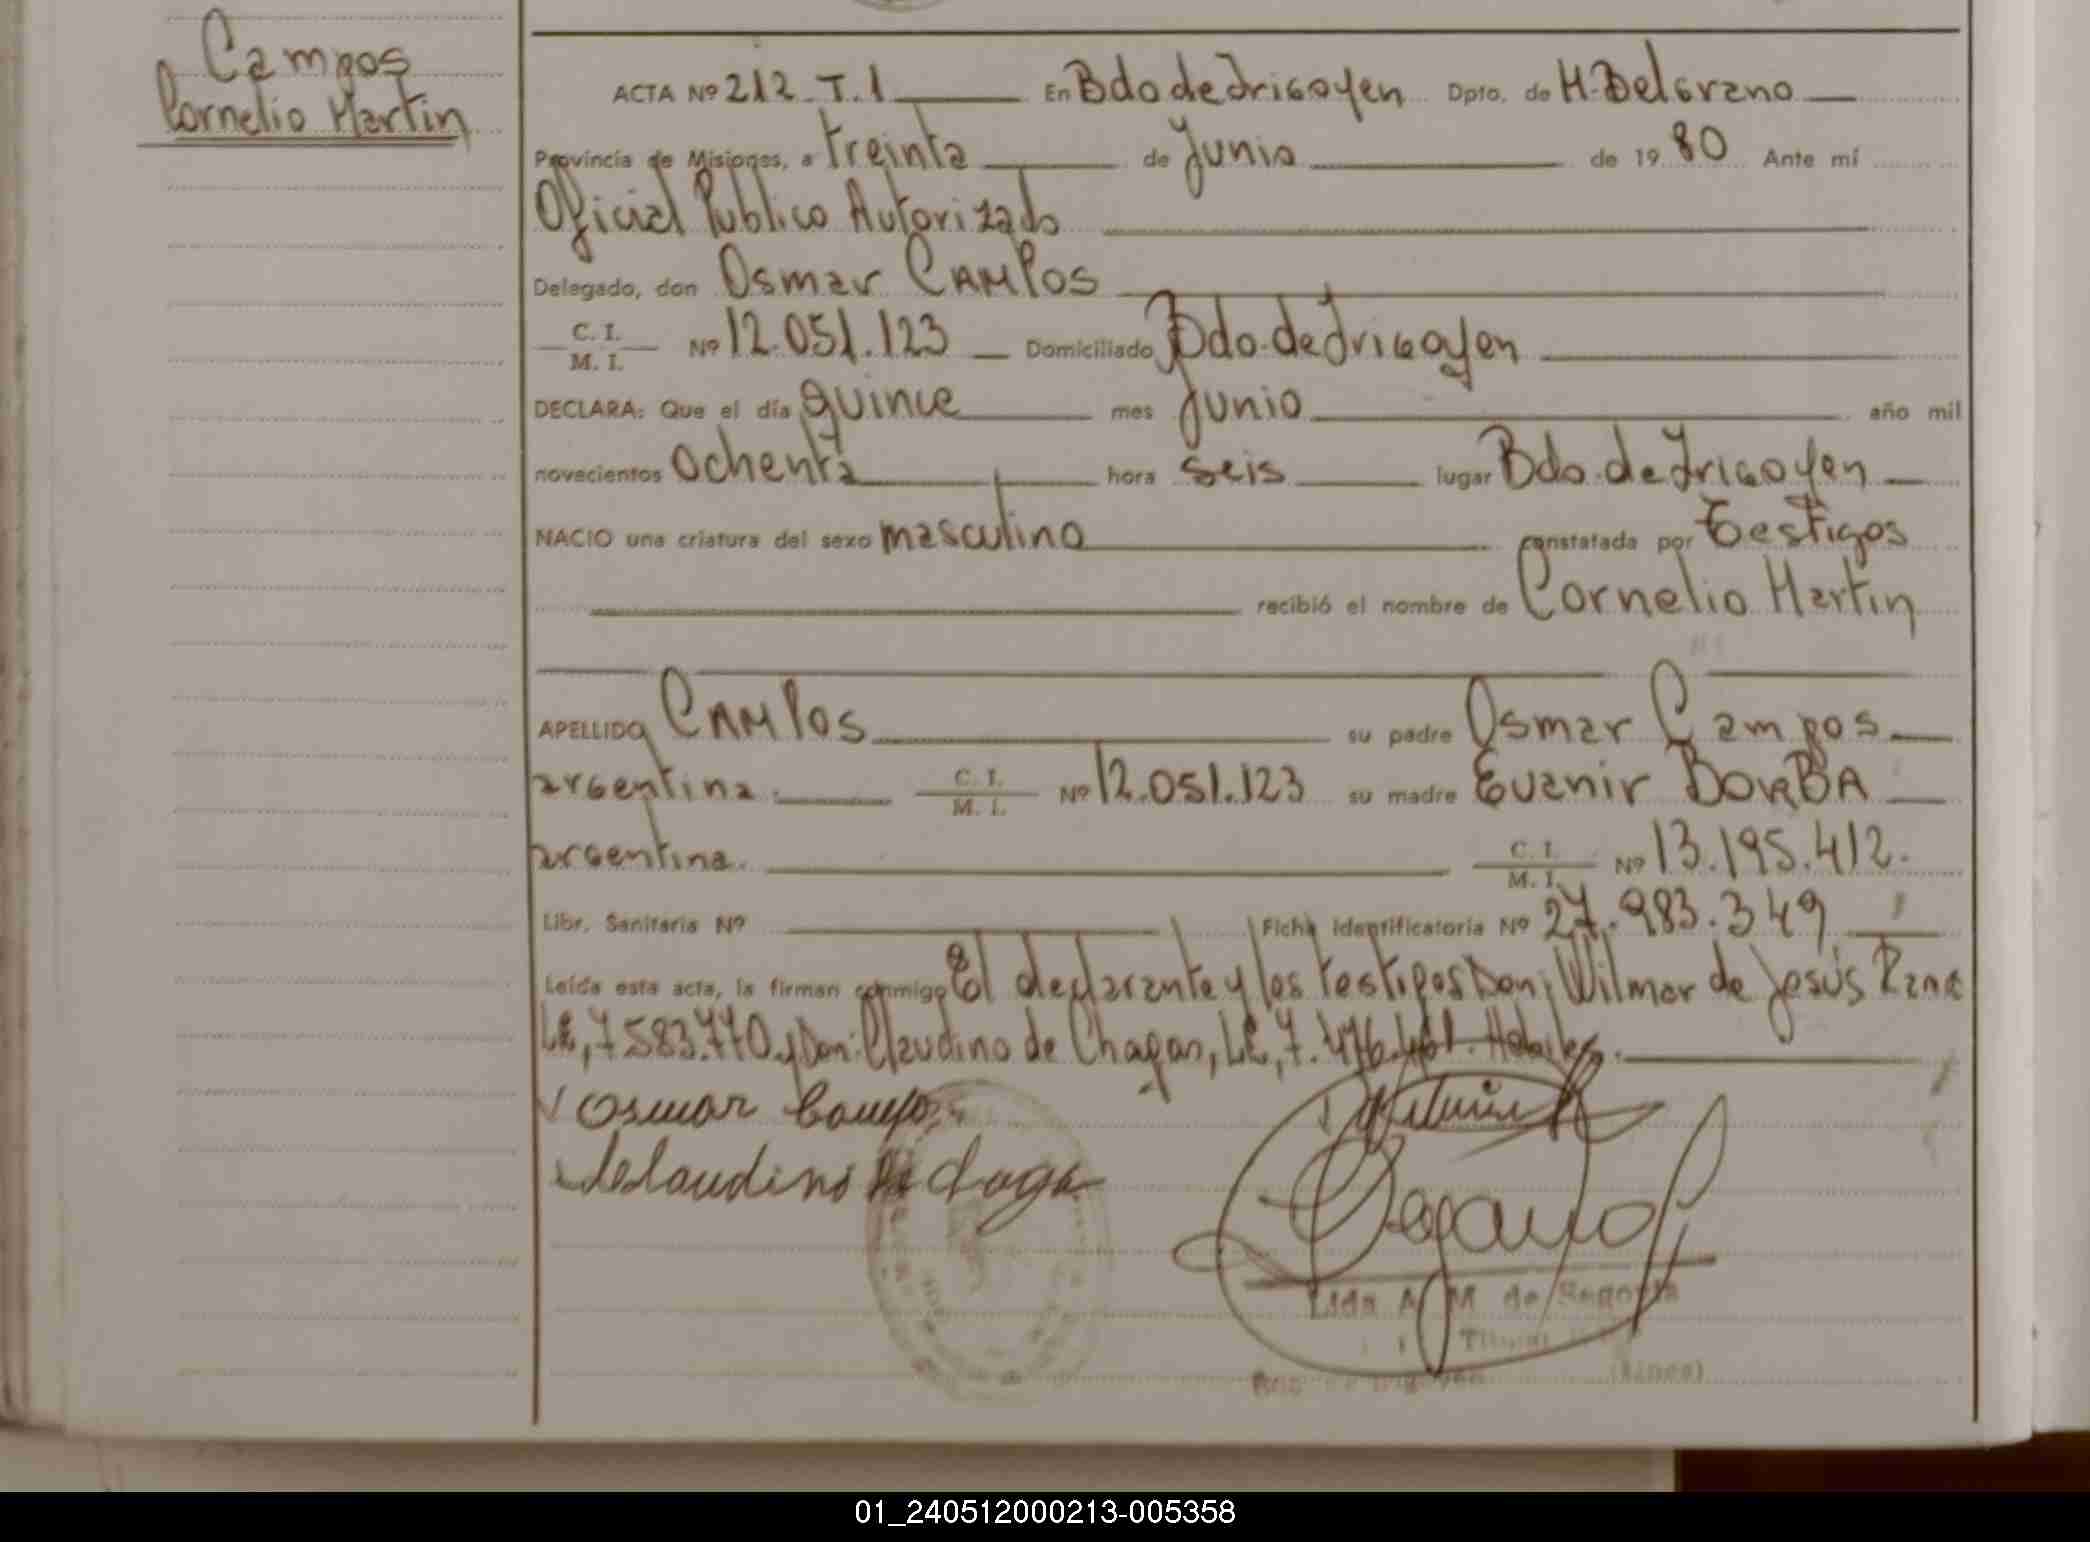 Campos
Cornelio Martin
ACTA Nº 212 T.1 En Bdo de Irigoyen Dpto. de M. Belgrano
Provincia de Misiones, a treinta de Junio de 1980 Ante mí
Oficial Publico Autorizado
Delegado, don Osmar CAMPOS
C. I. / M. I. Nº 12.051.123 Domiciliado Bdo. de Irigoyen
DECLARA: Que el día quince mes Junio año mil
novecientos ochenta hora seis lugar Bdo. de Irigoyen
NACIO una criatura del sexo masculino constatada por Testigos
recibió el nombre de Cornelio Martin
APELLIDO CAMPOS su padre Osmar Campos
argentina. C. I. / M. I. Nº 12.051.123 su madre Evanir BORBA
argentina. C. I. / M. I. Nº 13.195.412.
Libr. Sanitaria Nº Ficha Identificatoria Nº 27.983.349
Leída esta acta, la firman conmigo El declarante y los testigos Don; Wilmar de Jesús
LE, 7583.770 y Don: Claudino de Chagas, LE, 7.476.461. Habiles.
Osmar Campos
Claudino de Chaga
Lida A. M. de Segovia
01_240512000213-005358